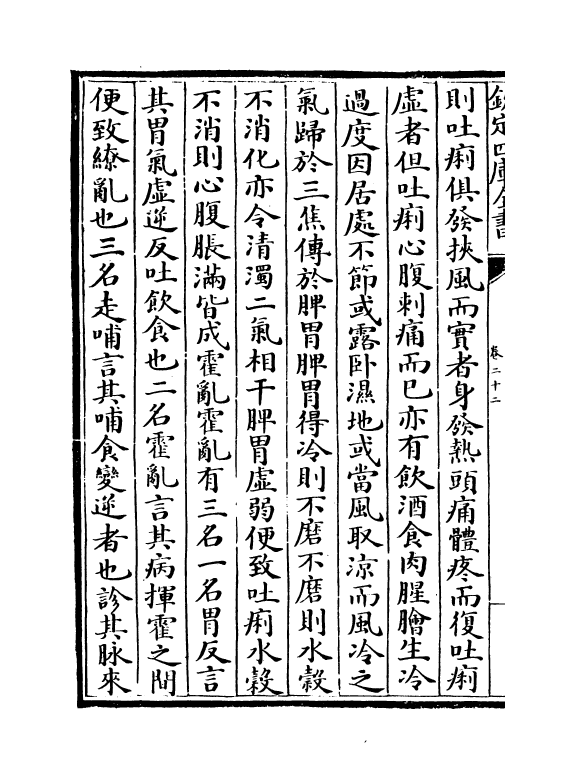 欽定四庫全書
卷二十二
則吐痢俱發挾風而實者身發熱頭痛體疼而復吐痢
虛者但吐痢心腹刺痛而已亦有飲酒食肉腥膾生冷
過度因居處不節或露卧濕地或當風取涼而風冷之
氣歸於三焦傳於脾胃脾胃得冷則不磨不磨則水穀
不消化亦令清濁二氣相干脾胃虛弱便致吐痢水穀
不消則心腹脹滿皆成霍亂霍亂有三名一名胃反言
其胃氣虛逆反吐飲食也二名霍亂言其病揮霍之間
便致繚亂也三名走哺言其哺食變逆者也診其脉來